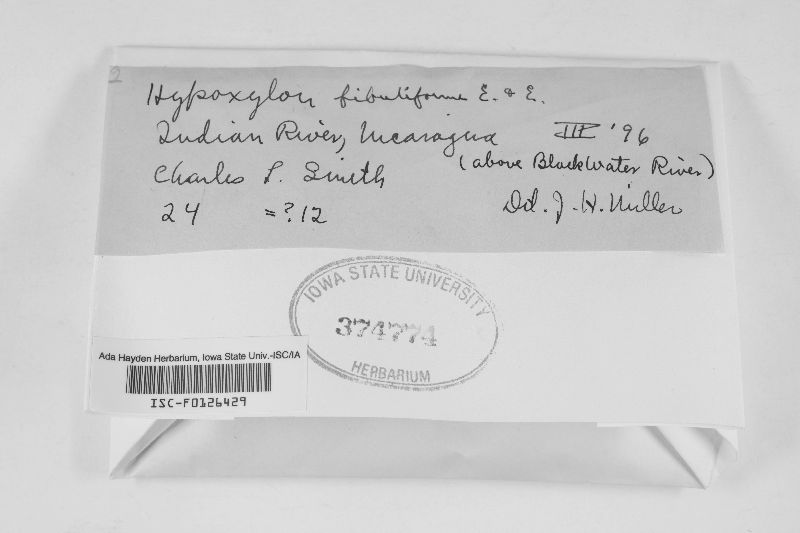 2
Hypoxylon fibuliforme E. & E.
Indian River, Nicaragua III '96
(above Blackwater River)
Charles L. Smith
24 = ? 12
Dd. J. H. Miller
IOWA STATE UNIVERSITY
374774
HERBARIUM
Ada Hayden Herbarium, Iowa State Univ.-ISC/IA
ISC-F0126429